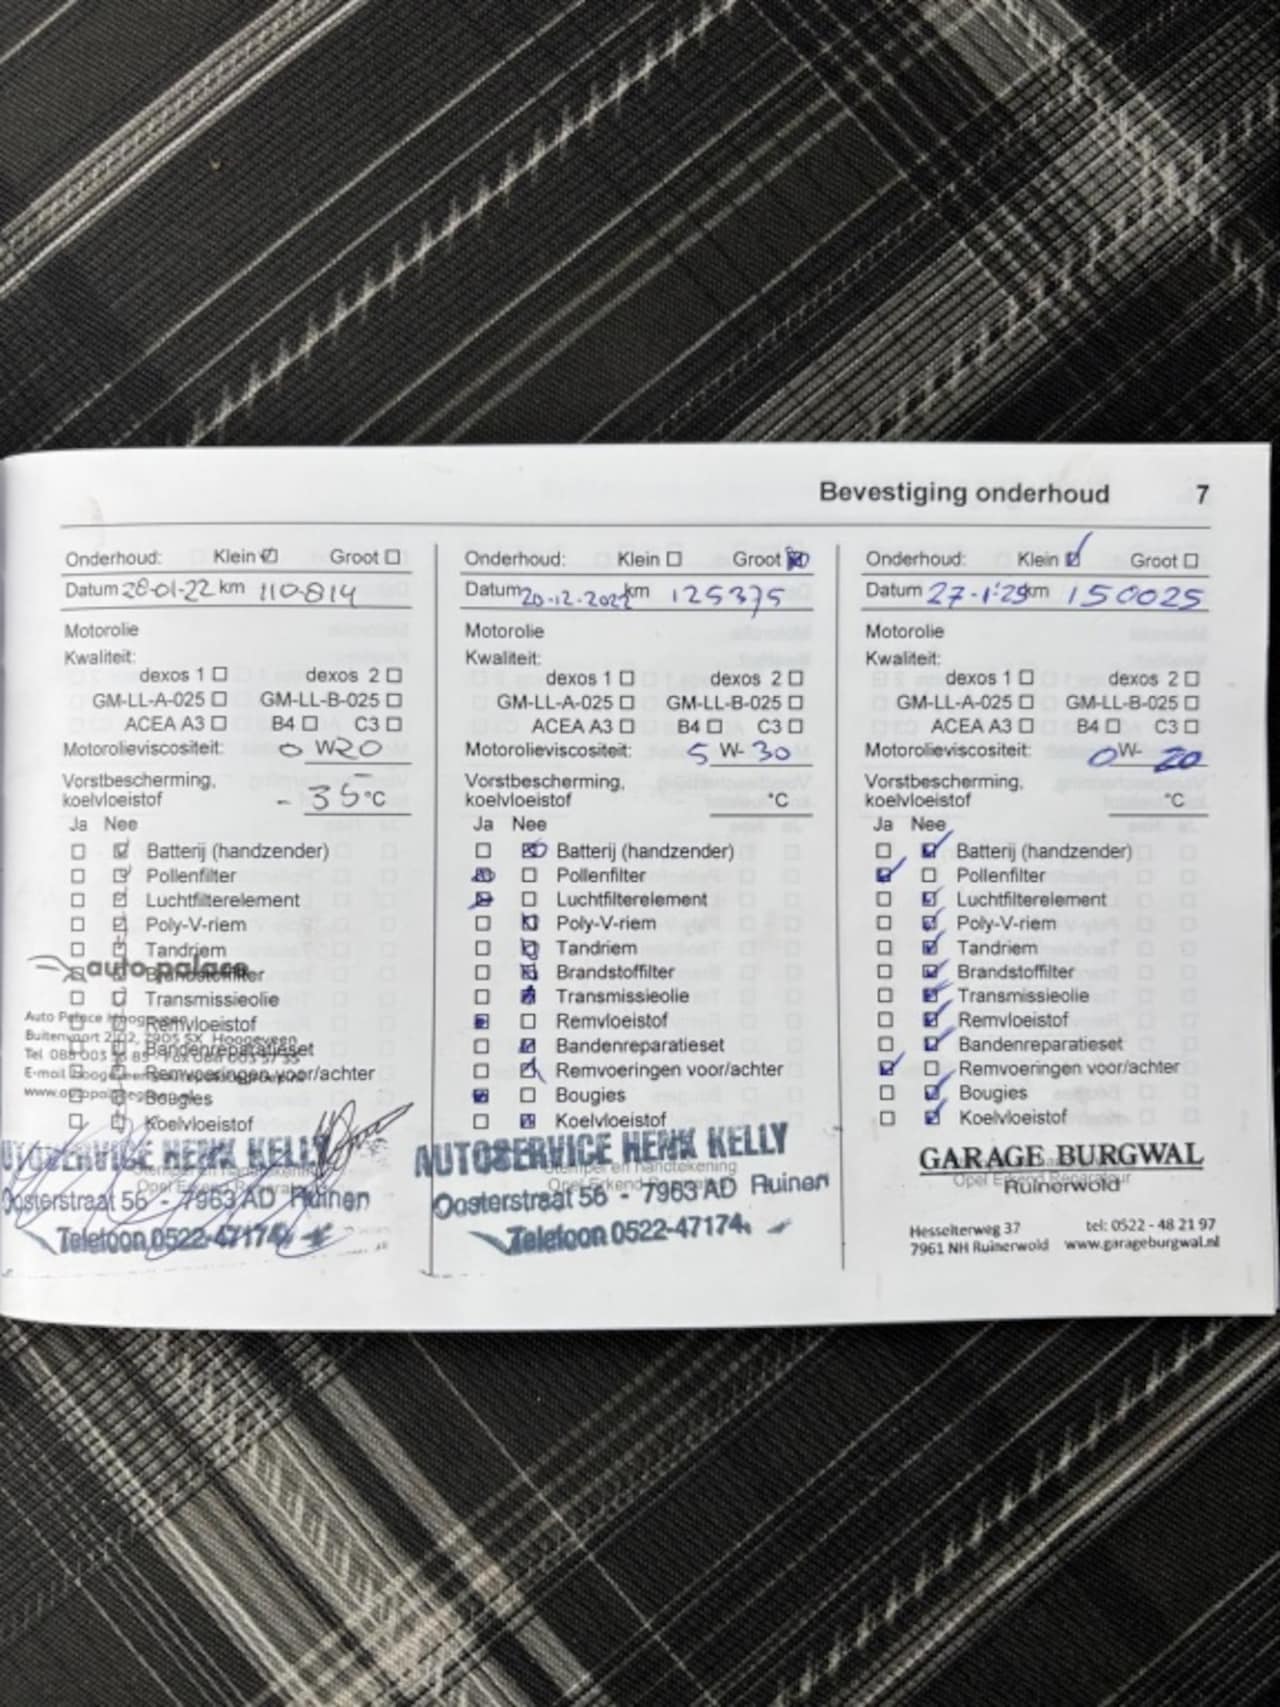 Bevestiging onderhoud 7
Onderhoud: Klein Groot
Datum 28-01-22 km 110-814
Motorolie
Kwaliteit:
dexos 1 dexos 2
GM-LL-A-025 GM-LL-B-025
ACEA A3 B4 C3
Motorolieviscositeit: 0 W20
Vorstbescherming,
koelvloeistof - 35 °C
Ja Nee
Batterij (handzender)
Pollenfilter
Luchtfilterelement
Poly-V-riem
Tandriem
auto palace
Brandstoffilter
Transmissieolie
Auto Palace Hoogeveen
Remvloeistof
Buitenvaart 2102, 7905 SX Hoogeveen
Bandenreparatieset
Remvoeringen voor/achter
Bougies
Koelvloeistof
AUTOSERVICE HENK KELLY
Stempel en handtekening
Opel Erkend Reparateur
Oosterstraat 56 - 7963 AD Ruinen
Telefoon 0522-47174
Onderhoud: Klein Groot
Datum 20-12-2022 km 125375
Motorolie
Kwaliteit:
dexos 1 dexos 2
GM-LL-A-025 GM-LL-B-025
ACEA A3 B4 C3
Motorolieviscositeit: 5 W- 30
Vorstbescherming,
koelvloeistof °C
Ja Nee
Batterij (handzender)
Pollenfilter
Luchtfilterelement
Poly-V-riem
Tandriem
Brandstoffilter
Transmissieolie
Remvloeistof
Bandenreparatieset
Remvoeringen voor/achter
Bougies
Koelvloeistof
AUTOSERVICE HENK KELLY
Stempel en handtekening
Opel Erkend Reparateur
Oosterstraat 56 - 7963 AD Ruinen
Telefoon 0522-47174
Onderhoud: Klein Groot
Datum km 150025
Motorolie
Kwaliteit:
dexos 1 dexos 2
GM-LL-A-025 GM-LL-B-025
ACEA A3 B4 C3
Motorolieviscositeit: 0 W- 20
Vorstbescherming,
koelvloeistof °C
Ja Nee
Batterij (handzender)
Pollenfilter
Luchtfilterelement
Poly-V-riem
Tandriem
Brandstoffilter
Transmissieolie
Remvloeistof
Bandenreparatieset
Remvoeringen voor/achter
Bougies
Koelvloeistof
GARAGE BURGWAL
Opel Erkend Reparateur
Ruinerwold
Hesselterweg 37 tel: 0522 - 48 21 97
7961 NH Ruinerwold www.garageburgwal.nl